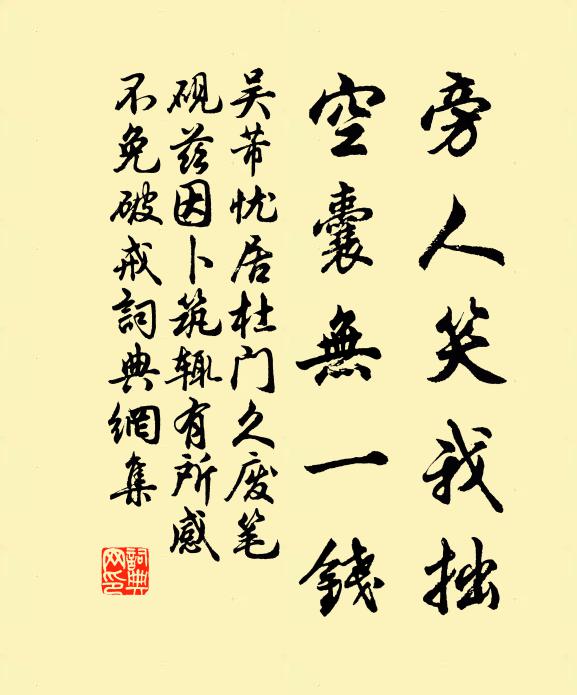 旁人笑我拙
空囊無一錢
吴芾忧居杜门久废笔
砚兹因卜筑辄有所感
不免破戒詞典網集
詞典网印